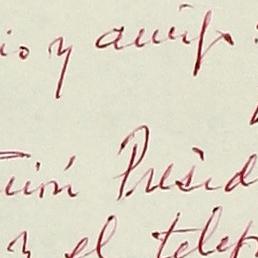 io y amigo:
ción Presid
y el telef